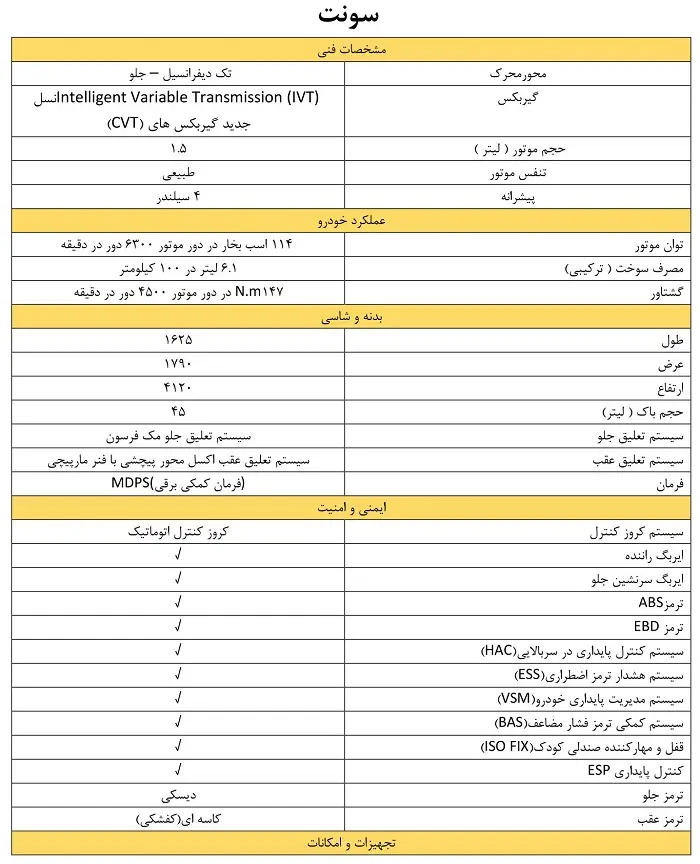 سونت
مشخصات فنی
محورمحرک تک دیفرانسیل – جلو
گیربکس Intelligent Variable Transmission (IVT)انسل
جدید گیربکس های (CVT)
حجم موتور ( لیتر ) ۱.۵
تنفس موتور طبیعی
پیشرانه ۴ سیلندر
عملکرد خودرو
توان موتور ۱۱۴ اسب بخار در دور موتور ۶۳۰۰ دور در دقیقه
مصرف سوخت ( ترکیبی) ۶.۱ لیتر در ۱۰۰ کیلومتر
گشتاور N.m۱۴۷ در دور موتور ۴۵۰۰ دور در دقیقه
بدنه و شاسی
طول ۱۶۲۵
عرض ۱۷۹۰
ارتفاع ۴۱۲۰
حجم باک ( لیتر) ۴۵
سیستم تعلیق جلو سیستم تعلیق جلو مک فرسون
سیستم تعلیق عقب سیستم تعلیق عقب اکسل محور پیچشی با فنر مارپیچی
فرمان (فرمان کمکی برقی)MDPS
ایمنی و امنیت
سیستم کروز کنترل کروز کنترل اتوماتیک
ایربگ راننده √
ایربگ سرنشین جلو √
ترمزABS √
ترمز EBD √
سیستم کنترل پایداری در سربالایی(HAC) √
سیستم هشدار ترمز اضطراری(ESS) √
سیستم مدیریت پایداری خودرو(VSM) √
سیستم کمکی ترمز فشار مضاعف(BAS) √
قفل و مهارکننده صندلی کودک(ISO FIX) √
کنترل پایداری ESP √
ترمز جلو دیسکی
ترمز عقب کاسه ای(کفشکی)
تجهیزات و امکانات